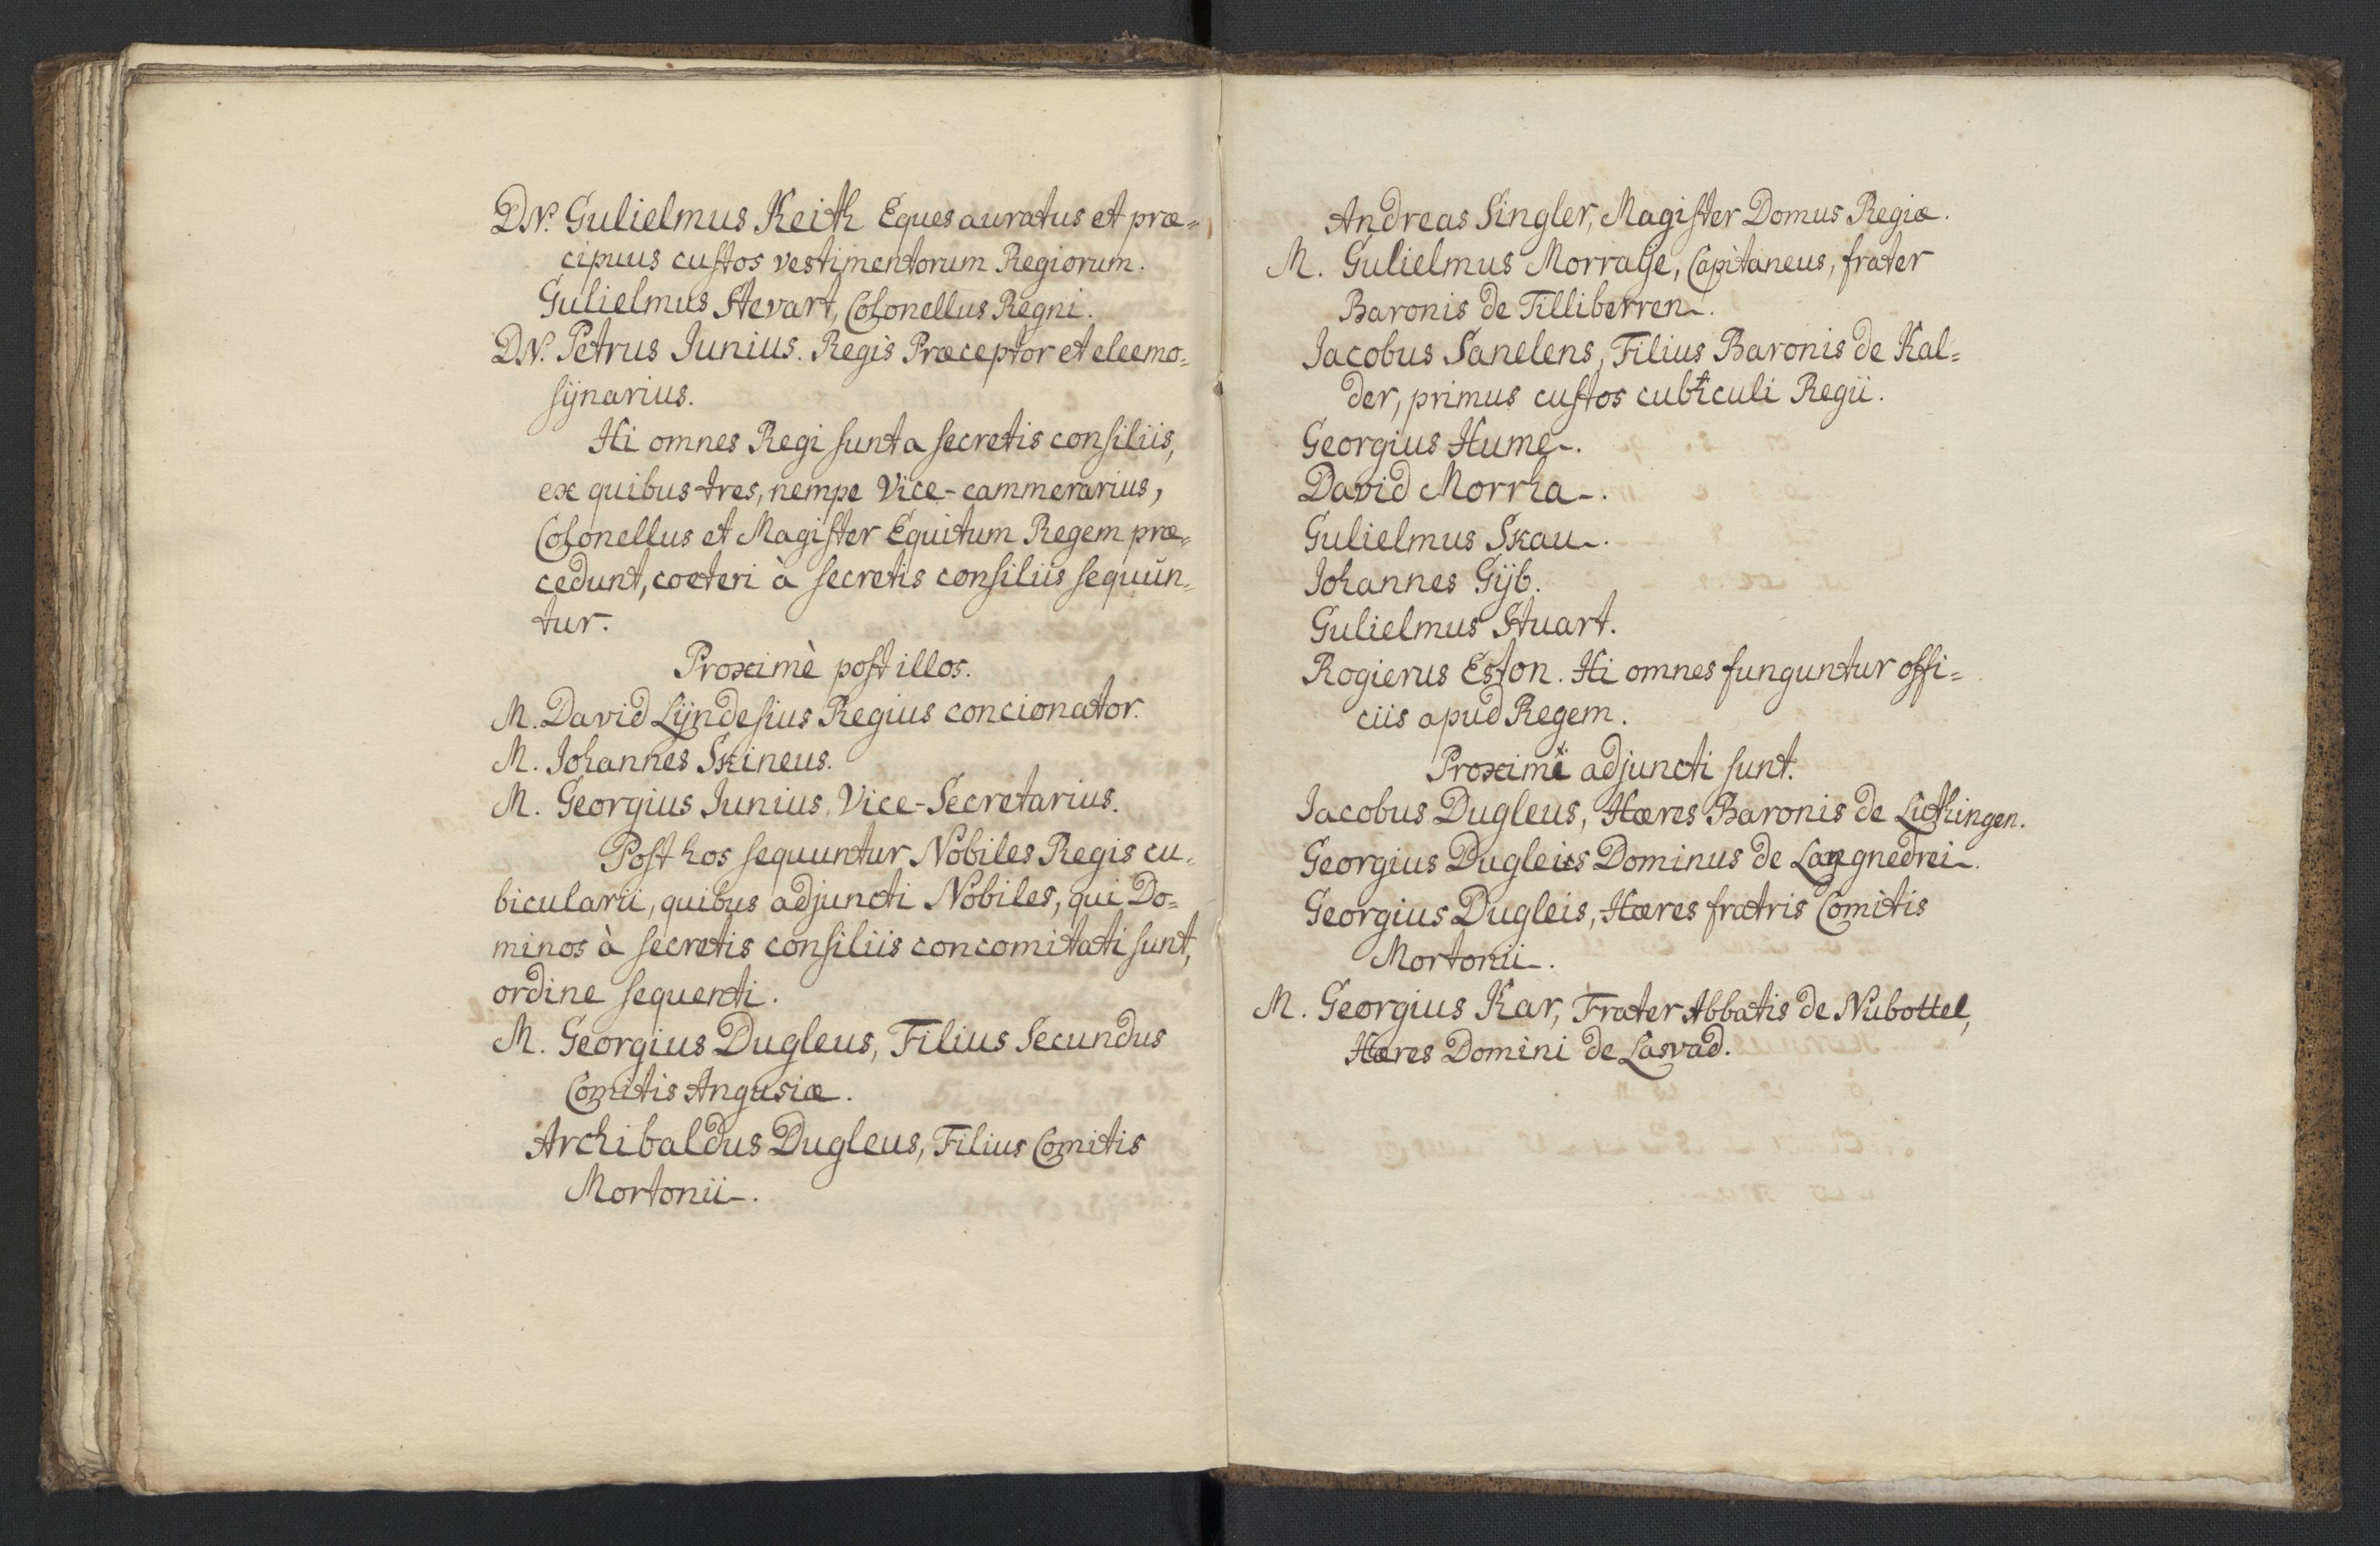 DN. Gulielmus Keith Eques auratus et præ=
cipuus custos vestimentorum Regiorum.
Gulielmus Stevart, Colonellus Regni.
DN. Petrus Iunius. Regis Præceptor et eleemo=
sÿnarius.
Hi omnes Regi sunt a secretis consiliis,
ex quibus tres, nempe Vice-cammerarius,
Colonellus et Magister Equitum Regem præ=
cedunt, cœteri à secretis consiliis sequun=
tur.
Proximè post illos.
M. David Lÿndesius Regius concionator.
M. Johannes Skineus.
M. Georgius Iunius. Vice-Secretarius.
Post hos sequuntur Nobiles Regis cu=
bicularii, quibus adjuncti Nobiles, qui Do=
minos à secretis consiliis concomitati sunt,
ordine sequenti.
M. Georgius Dugleus, Filius Secundus
Comitis Angusiæ.
Archibaldus Dugleus, Filius Comitis
Mortonii.
Andreas Singler, Magister Domus Regiæ.
M. Gulielmus Morraÿe, Capitaneus, frater
Baronis de Tilliberren.
Jacobus Sanelens, Filius Baronis de Kal=
der, primus custos cubiculi Regii.
Georgius Hume.
David Morrha.
Gulielmus Skau.
Johannes Gÿb.
Gulielmus Stuart.
Rogierus Eston. Hi omnes funguntur offi=
ciis apud Regem.
Proximi adjuncti sunt.
Jacobus Dugleus, Hæres Baronis de Lithingen.
Georgius Dugleus Dominus de Langnedrei.
Georgius Dugleis, Hæres fratris Comitis
Mortonii.
M. Georgius Kar, Frater Abbatis de Nubottel,
Hæres Domini de Lasvad.